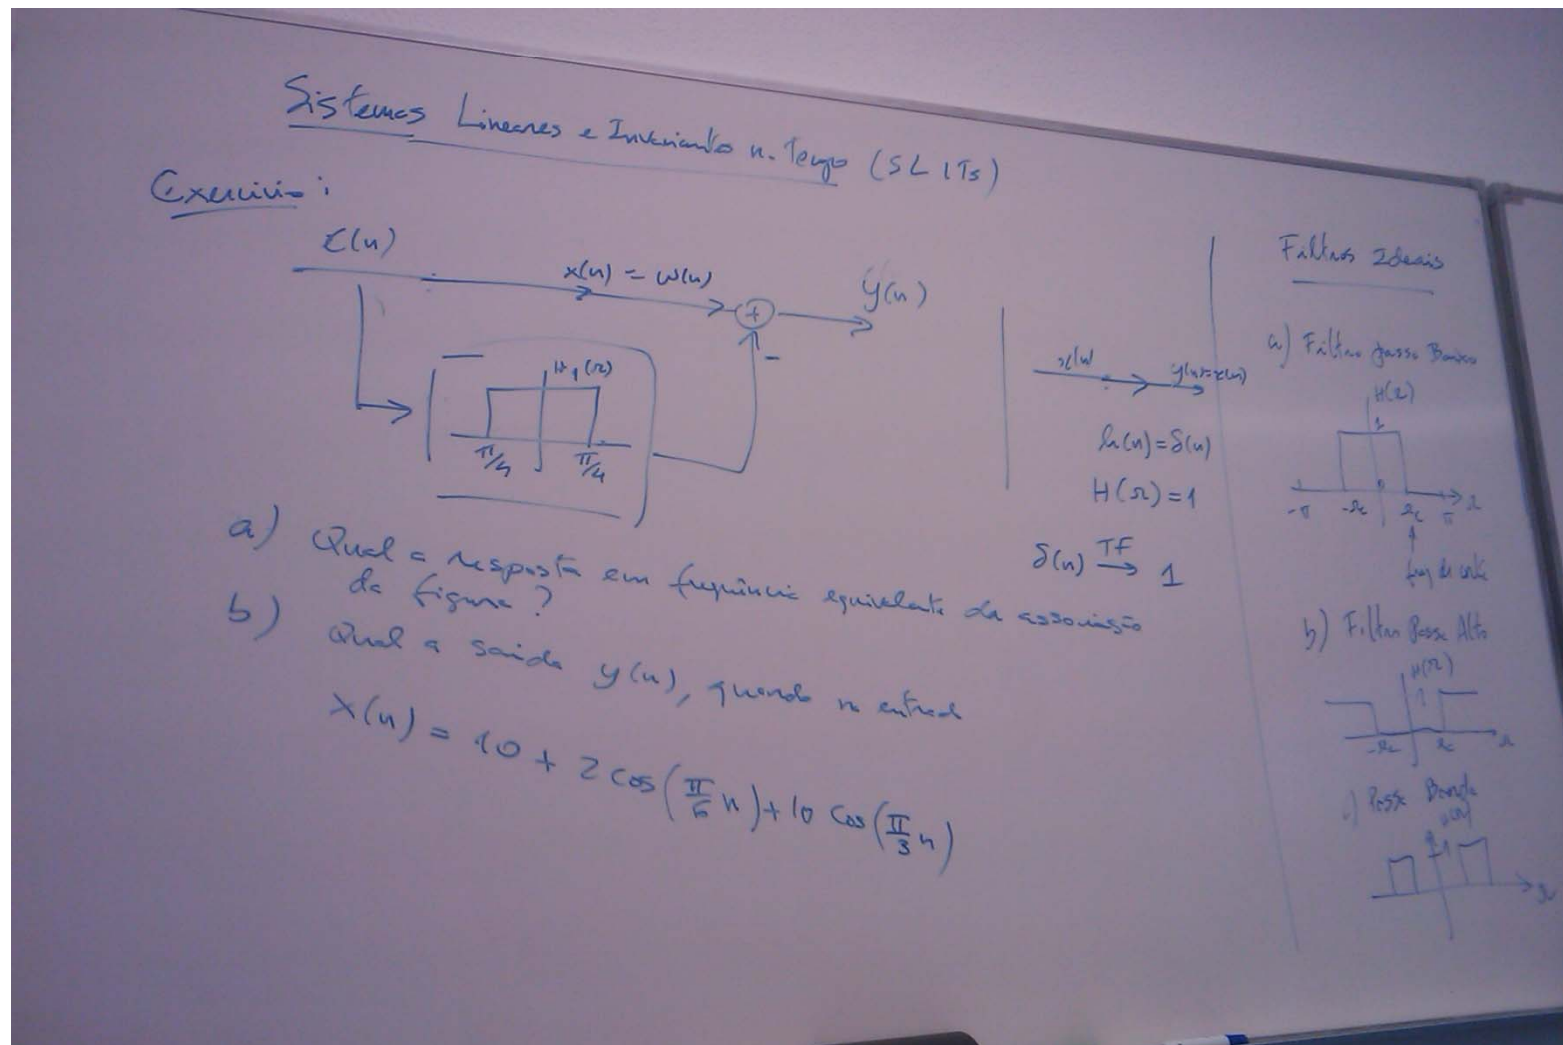 Sistemas Lineares e Invariantes n. Tempo (SLITs)
Exercício:
x(n)
x(n) = w(n)
y(n)
+
-
H1(Ω)
π/4
π/4
a) Qual a resposta em frequência equivalente da associação
da figura?
b) Qual a saída y(n), quando na entrada
x(n) = 10 + 2 cos(π/6 n) + 10 cos(π/3 n)
x(n)
y(n)=x(n)
h(n)=δ(n)
H(Ω)=1
δ(n) TF→ 1
Filtros Ideais
a) Filtro Passo Baixo
H(Ω)
1
-π -Ωc Ωc π Ω
freq de corte
b) Filtro Passe Alto
H(Ω)
1
-Ωc Ωc Ω
c) Passe Banda
H(Ω)
1
Ω